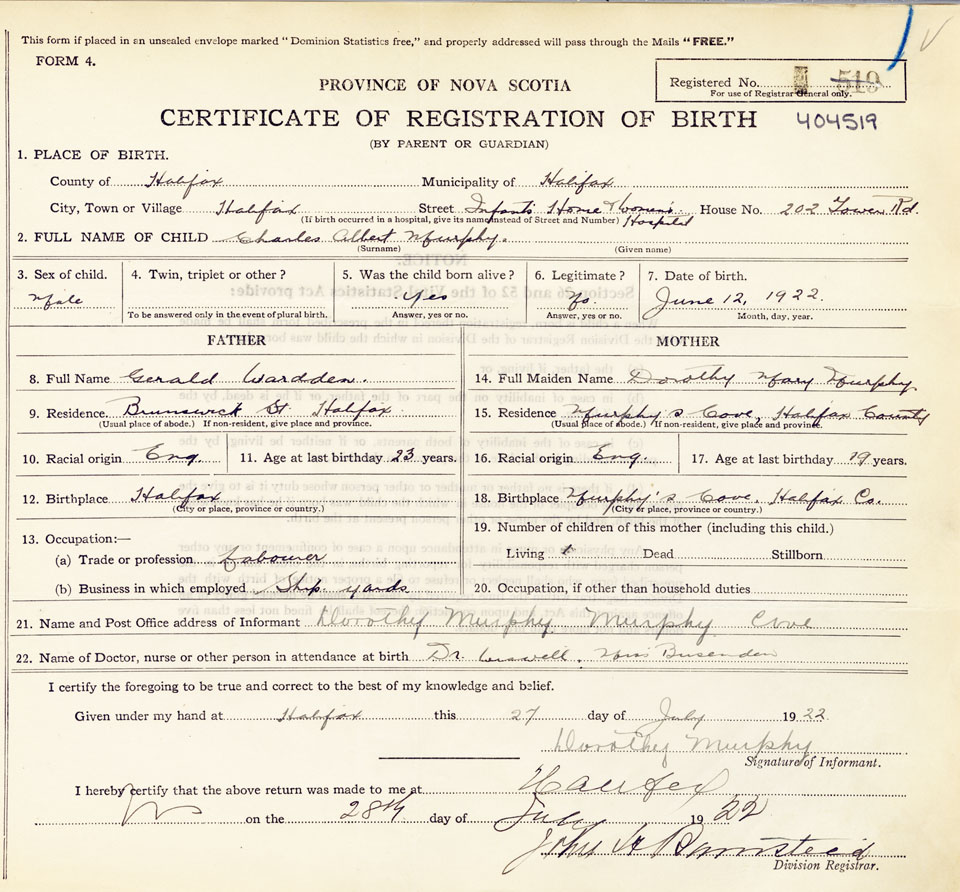 This form if placed in an unsealed envelope marked "Dominion Statistics free," and properly addressed will pass through the Mails "FREE."
FORM 4.
PROVINCE OF NOVA SCOTIA
Registered No. 519
For use of Registrar General only.
CERTIFICATE OF REGISTRATION OF BIRTH 404519
(BY PARENT OR GUARDIAN)
1. PLACE OF BIRTH.
County of Halifax Municipality of Halifax
City, Town or Village Halifax Street Infants Home Women's Hospital House No. 202 Tower Rd.
(If birth occurred in a hospital, give its name instead of Street and Number)
2. FULL NAME OF CHILD Charles Albert Murphy.
(Surname) (Given name)
3. Sex of child. 4. Twin, triplet or other? 5. Was the child born alive? 6. Legitimate? 7. Date of birth.
Male Yes No. June 12, 1922.
To be answered only in the event of plural birth. Answer, yes or no. Answer, yes or no. Month, day, year.
FATHER MOTHER
8. Full Name Gerald Wardden. 14. Full Maiden Name Dorothy Mary Murphy.
9. Residence. Brunswick St. Halifax 15. Residence Murphy's Cove, Halifax County
(Usual place of abode.) If non-resident, give place and province. (Usual place of abode.) If non-resident, give place and province.
10. Racial origin Eng. 11. Age at last birthday 23 years. 16. Racial origin Eng. 17. Age at last birthday 19 years.
12. Birthplace Halifax 18. Birthplace Murphy's Cove, Halifax Co.
(City or place, province or country.) (City or place, province or country.)
13. Occupation:— 19. Number of children of this mother (including this child.)
(a) Trade or profession Labourer Living 1 Dead Stillborn
(b) Business in which employed Ship yards 20. Occupation, if other than household duties
21. Name and Post Office address of Informant Dorothy Murphy. Murphy Cove
22. Name of Doctor, nurse or other person in attendance at birth Dr. Miss
I certify the foregoing to be true and correct to the best of my knowledge and belief.
Given under my hand at Halifax this 27 day of July 1922
Dorothy Murphy
Signature of Informant.
I hereby certify that the above return was made to me at Halifax
NS on the 28th day of July 1922
John H Barnstead
Division Registrar.